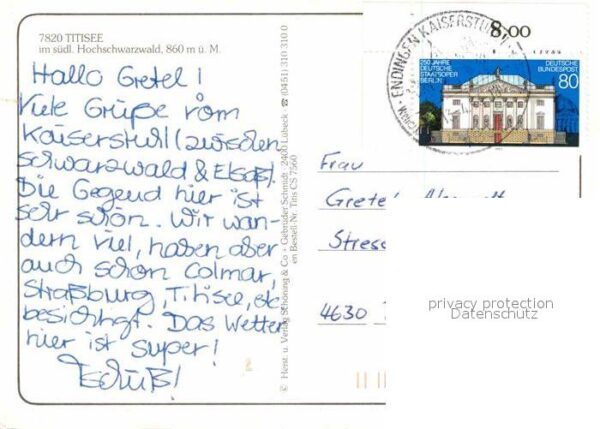 7820 TITISEE
im südl. Hochschwarzwald, 860 m ü. M.
Hallo Gretel!
Viele Grüße vom
Kaiserstuhl (zwischen
Schwarzwald & Elsaß).
Die Gegend hier ist
sehr schön. Wir wan-
dern viel, haben aber
auch schon Colmar,
Straßburg, Titisee, etc
besichtigt. Das Wetter
hier ist super!
Tschüß!
© Herst. u. Verlag Schöning & Co · Gebrüder Schmidt · 2400 Lübeck ☎ (0451) 310 310 0
Bestell-Nr. Tins CS 7560
8,00
ENDINGEN KAISERSTUHL
250 JAHRE
DEUTSCHE
STAATSOPER
BERLIN
DEUTSCHE
BUNDESPOST
80
Frau
Gretel
4630
privacy protection
Datenschutz